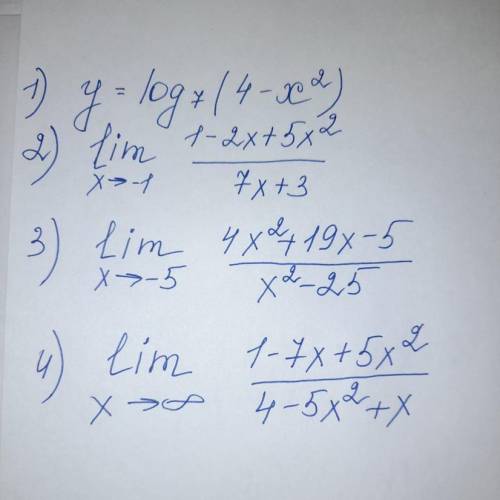 1) y = log₇(4-x²)
2) lim x→-1 (1-2x+5x²)/(7x+3)
3) lim x→-5 (4x²+19x-5)/(x²-25)
4) lim x→∞ (1-7x+5x²)/(4-5x²+x)